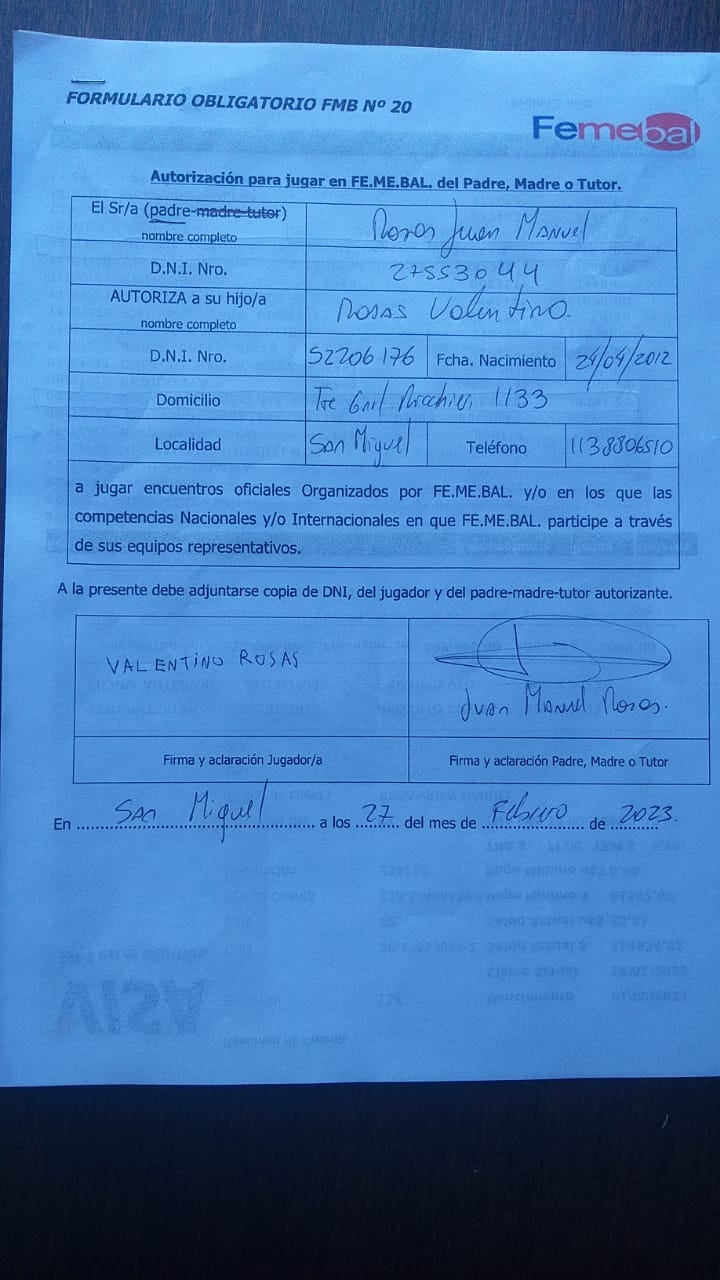 FORMULARIO OBLIGATORIO FMB Nº 20
Femebal
Autorización para jugar en FE.ME.BAL. del Padre, Madre o Tutor.
El Sr/a (padre-madre-tutor)
nombre completo
Rosas Juan Manuel
D.N.I. Nro.
27553044
AUTORIZA a su hijo/a
nombre completo
Rosas Valentino.
D.N.I. Nro.
52206176
Fcha. Nacimiento
24/04/2012
Domicilio
Tte Gral Ricchieri 1133
Localidad
San Miguel
Teléfono
1138806510
a jugar encuentros oficiales Organizados por FE.ME.BAL. y/o en los que las
competencias Nacionales y/o Internacionales en que FE.ME.BAL. participe a través
de sus equipos representativos.
A la presente debe adjuntarse copia de DNI, del jugador y del padre-madre-tutor autorizante.
VALENTINO ROSAS
Juan Manuel Rosas.
Firma y aclaración Jugador/a
Firma y aclaración Padre, Madre o Tutor
En San Miguel a los 27 del mes de Febrero de 2023.
VISA
Resumen de Cuenta